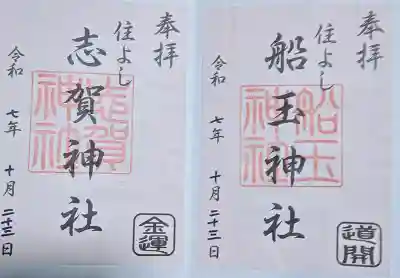 奉拝
住よし
船玉神社
令和 七年 十月 二十三日
船玉神社
道開
奉拝
住よし
志賀神社
令和 七年 十月 二十三日
志賀神社
金運